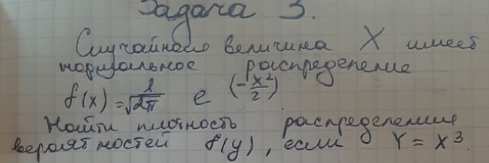 Задача 3.
Случайная величина X имеет
нормальное распределение
f(x) = 1/√2π e^(-x²/2)
Найти плотность распределения
вероятностей f(y), если Y = X³.